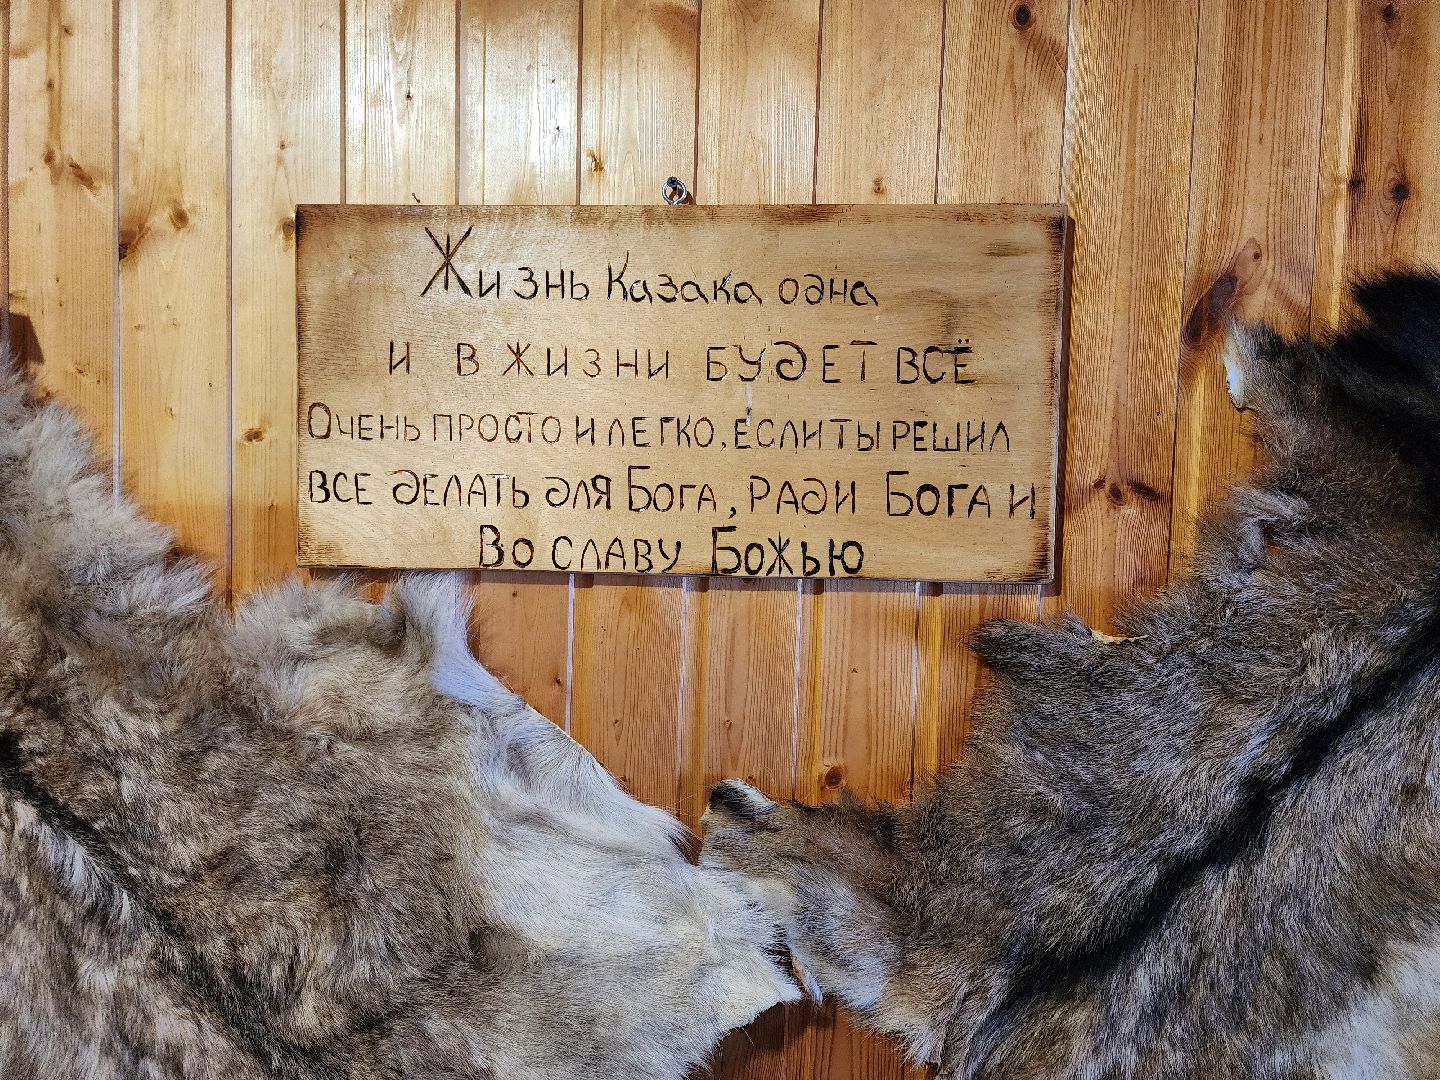 Жизнь Казака одна
и в жизни будет всё
Очень просто и легко, если ты решил
все делать для Бога, ради Бога и
Во славу Божью